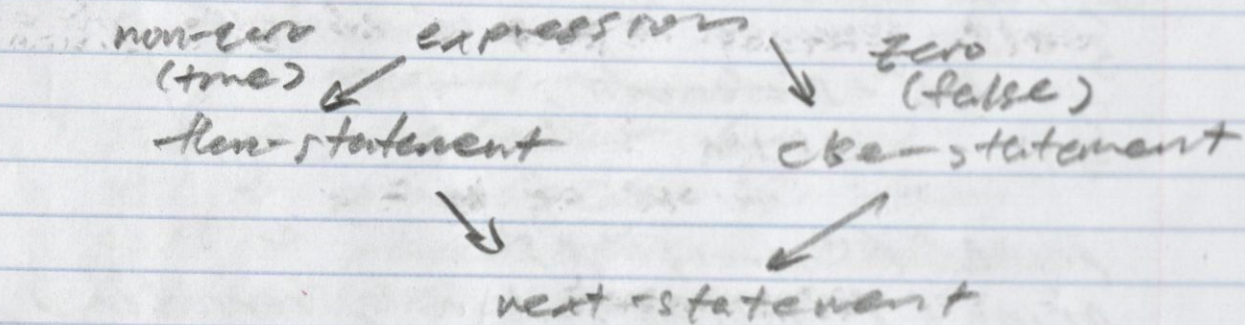 non-zero expression zero
(true) (false)
then-statement else-statement
next-statement